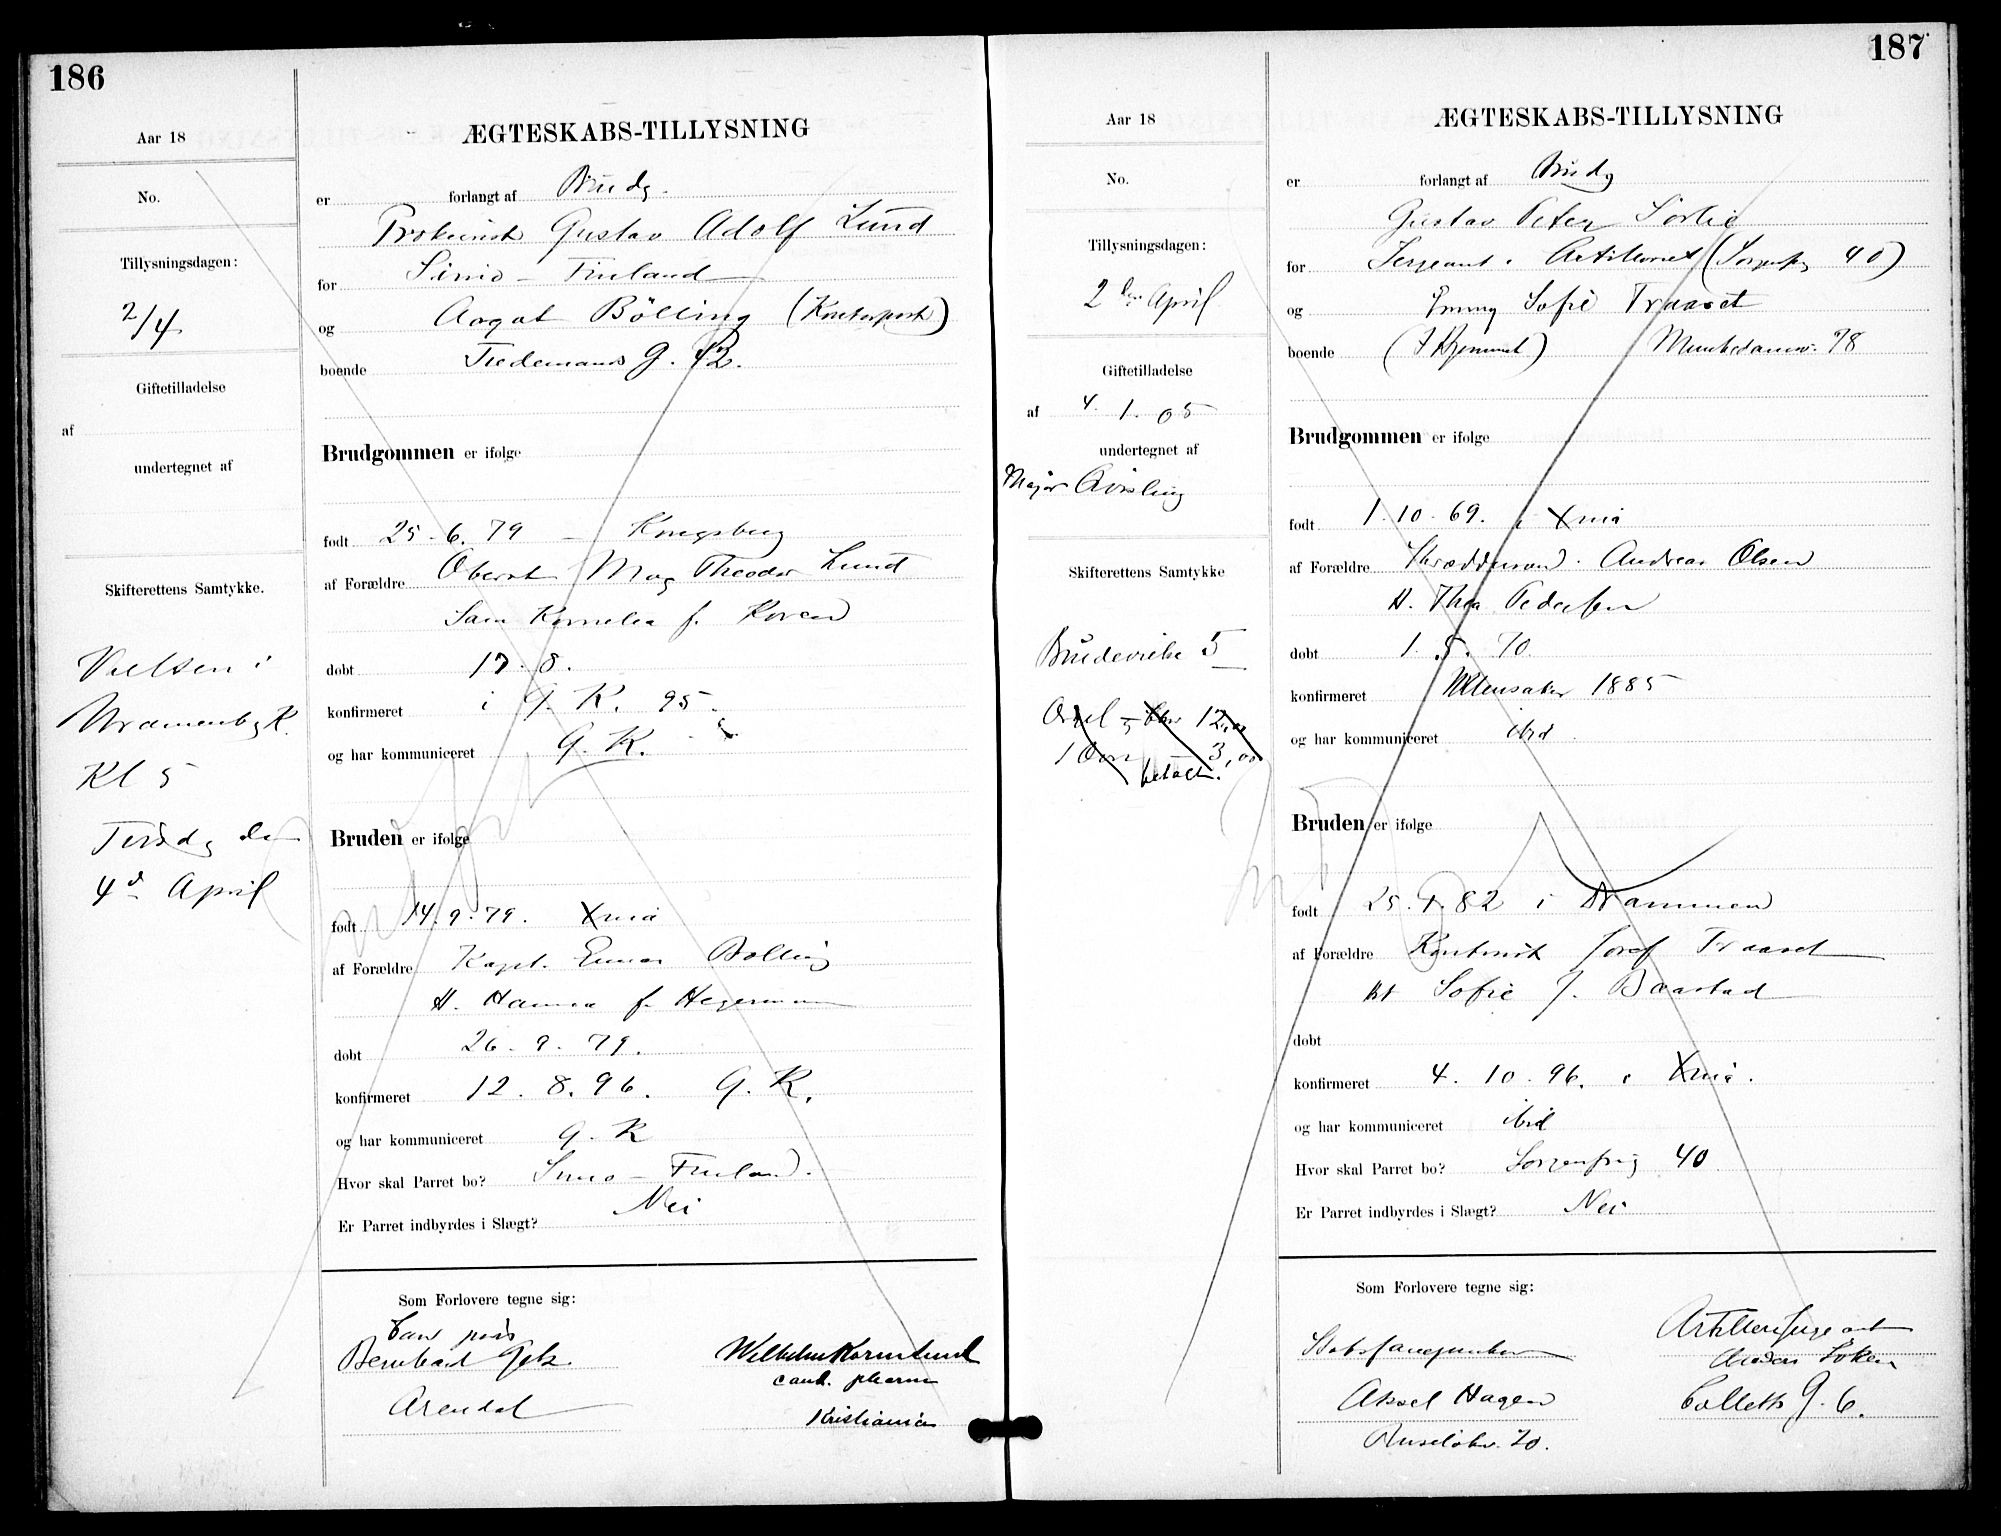 186
Aar 18
No.
Tillysningsdagen:
2/4
Giftetilladelse
af
undertegnet af
Skifterettens Samtykke.
Vielsen i
Uranienbg K.
Kl 5
Tirsdg den
4d April
ÆGTESKABS-TILLYSNING
er forlangt af Brudg.
Gustav Adolf Lund
for Simo - Finland
og Aagot Bölling
boende Tiedemands G. 12.
Brudgommen er ifølge
født 25-6.79 - Kongsberg
af Forældre Oberst Theodor Lund
Kornelia f. Koren
døbt 17-8.
konfirmeret i G. K. 95.
og har kommuniceret G. K.
Bruden er ifølge
født 14.9.79. Xnia
af Forældre Kapt. Einar Bølling
H. Hanna f. Hegermann
døbt 26-9.79.
konfirmeret 12.8.96. G. K.
og har kommuniceret G. K
Hvor skal Parret bo? Simo - Finland.
Er Parret indbyrdes i Slægt? Nei
Som Forlovere tegne sig:
Arendal
cand. pharm
Kristiania
187
Aar 18
No.
Tillysningsdagen:
2den April
Giftetilladelse
af 4. 1. 05
undertegnet af
Major Qvisling
Skifterettens Samtykke
Brudevielse 5
Orgel 12,00
3,00
betalt.
ÆGTESKABS-TILLYSNING
er forlangt af Brudg
Gustav Peter Sörlie
for Sergeant i Artilleriet (Sorgenfrg 40)
og Emmy Sofie Traaset
boende Munkedamsv. 78
Brudgommen er ifølge
født 1.10.69. i Xnia
af Forældre Andreas Olsen
H. Thea Pedersen
døbt 1.5.70.
konfirmeret Ullensaker 1885
og har kommuniceret ibid.
Bruden er ifølge
født 25.1.82 i Drammen
af Forældre Josef Traaset
Sofie f. Baastad
døbt
konfirmeret 4.10.96. i Xnia.
og har kommuniceret ibid
Hvor skal Parret bo? Sorgenfrig 40
Er Parret indbyrdes i Slægt? Nei
Som Forlovere tegne sig:
Aksel Hagen
Colletts G. 6.